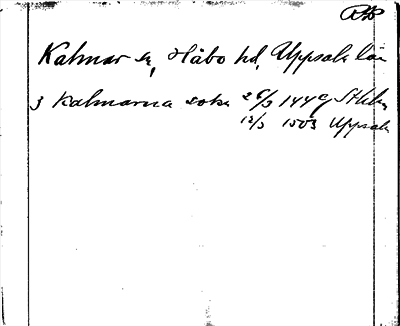 RAP
Kalmar sn, Håbo hd, Uppsala län
3 Kalmarna sokn 26/3 1449 Sthlm
12/3 1503 Uppsala